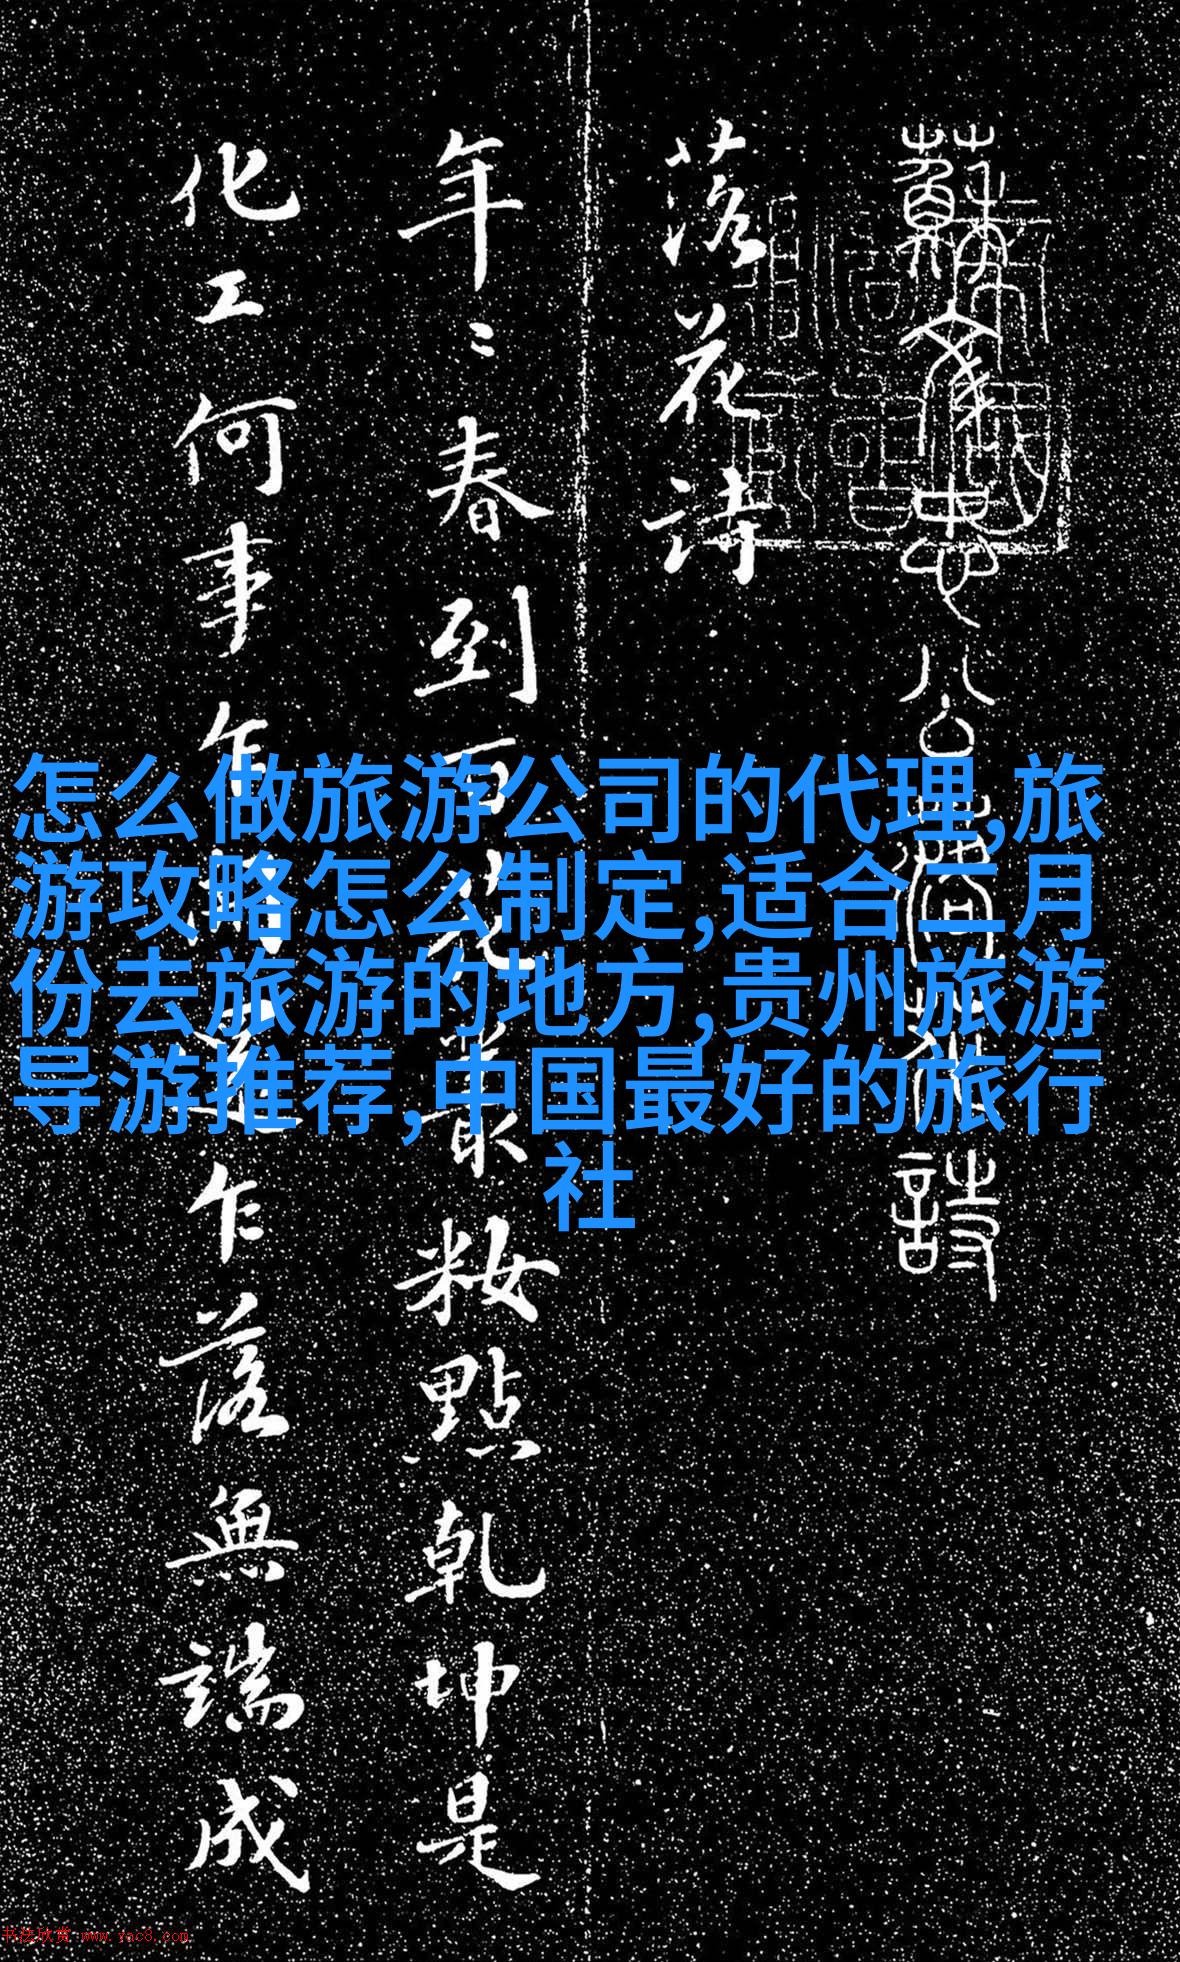 蘇文忠公落花詩
落花詩
年〻春到百花叢粧點乹坤是
化工何事乍開還乍落無端成
怎么做旅游公司的代理,旅
游攻略怎么制定,适合二月
份去旅游的地方,贵州旅游
导游推荐,中国最好的旅行
社
书法欣赏 www.yac8.com